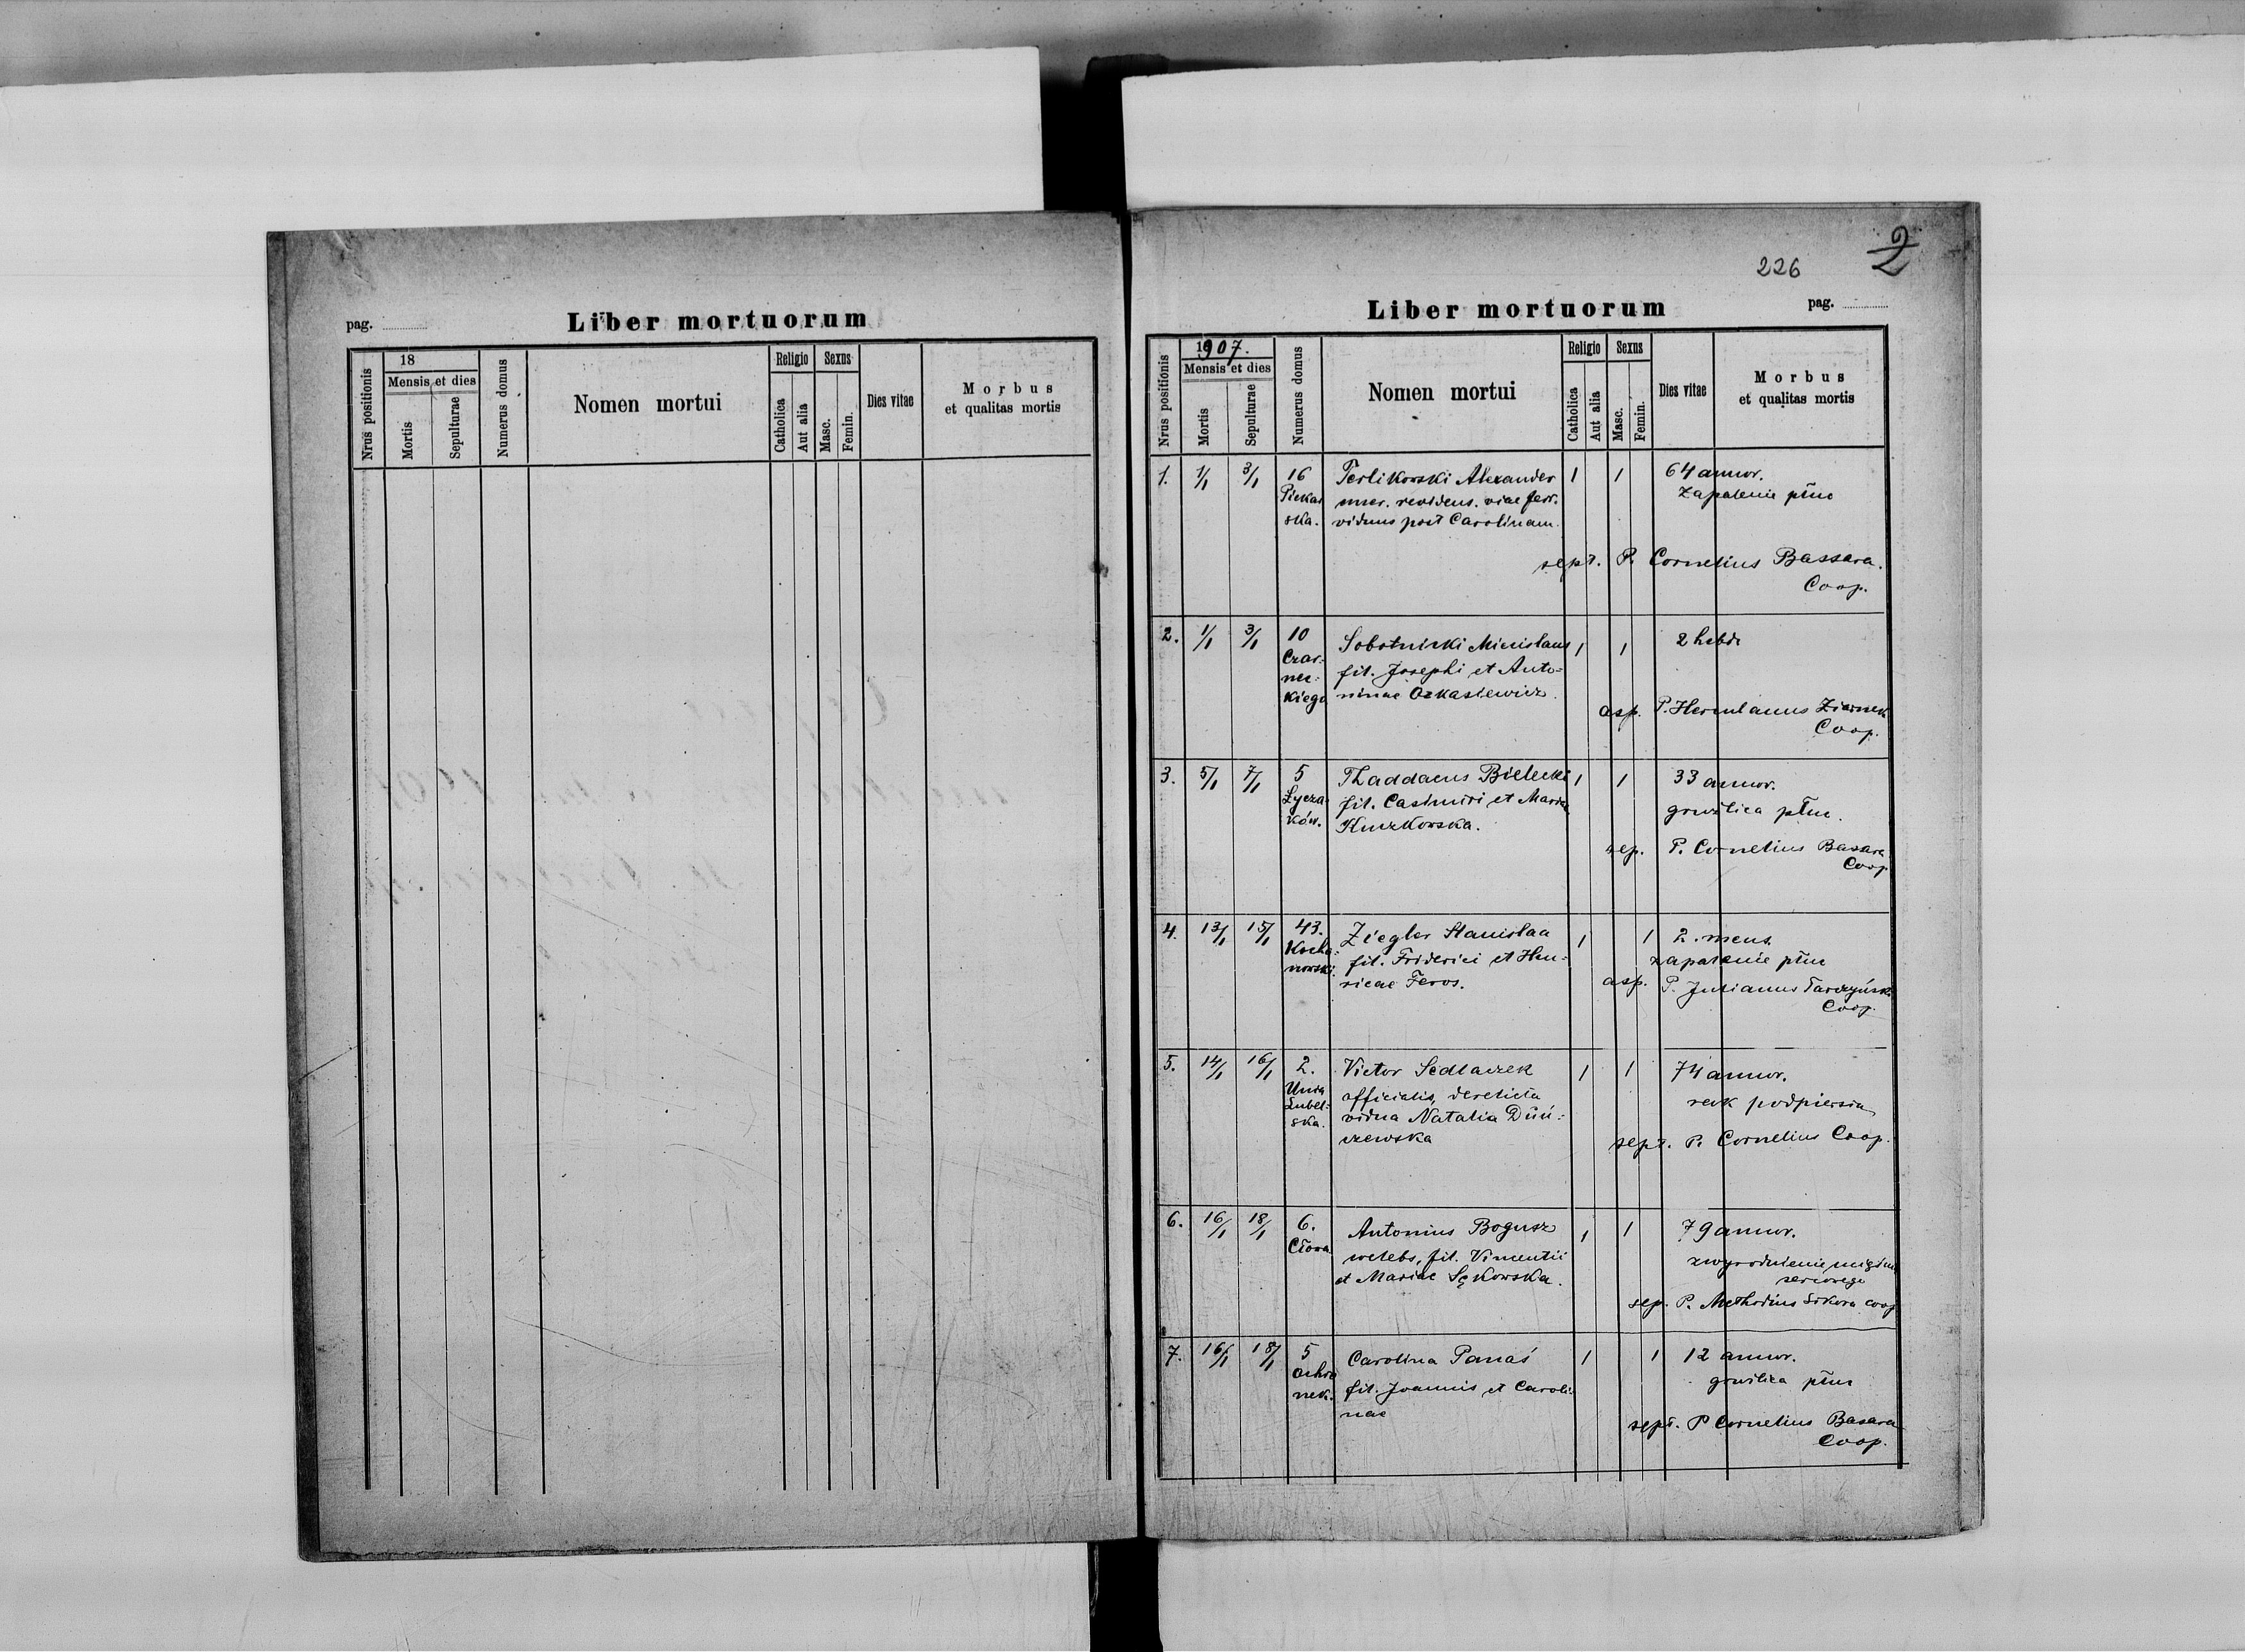 pag.
Liber mortuorum
Nrus positionis
18
Mensis et dies
Mortis
Sepulturae
Numerus domus
Nomen mortui
Religio
Catholica
Aut alia
Sexus
Masc.
Femin.
Dies vitae
Morbus
et qualitas mortis
226
2
Liber mortuorum
pag.
Nrus positionis
1907.
Mensis et dies
Mortis
Sepulturae
Numerus domus
Nomen mortui
Religio
Catholica
Aut alia
Sexus
Masc.
Femin.
Dies vitae
Morbus
et qualitas mortis
1. 1/1 3/1 16 Terlikowski Alexander 1 1 64 annor.
Piekar revidens. viae ferr. Zapalenie płuc
ska. viduus post Carolinam.
sept. P. Cornelius Bassara.
Coop.
2. 1/1 3/1 10 Sobotnicki Micislaus 1 1 2 hebd.
Czar- fil. Josephi et Anto-
nec- ninae
kiego
asp. P. Herculanus Ziarnek
Coop.
3. 5/1 7/1 5 Thaddaeus Bielecki 1 1 33 annor.
Łycza- fil. Casimiri et Maria gruźlica płuc.
ków. Kuczkowska.
sep. P. Cornelius Basara
Coop
4. 13/1 15/1 43. Ziegler Stanislaa 1 1 2. mens.
Kocha- fil. Friderici et Hen- zapalenie płuc
nowski. ricae Feros.
asp. P. Julianus Tarczyński
Coop.
5. 14/1 16/1 2. Victor Sedlaczek 1 1 74 annor.
Unia officialis, derelicta rak podpiersia
Lubel- vidua Natalia
ska. czewska
sept. P. Cornelius Coop.
6. 16/1 18/1 6. Antonius Bogusz 1 1 79 annor.
Cłowa coelebs, fil. Vincentii zwyrodnienie mięśnia
et Mariae Sękowska. sercowego
sep. P. Methodius Sikora coop
7. 16/1 18/1 5 Carolina Panaś 1 1 12 annor.
Ochro fil. Joannis et Caroli- gruźlica płuc
nek. nae
sept. P Cornelius Basara
Coop.